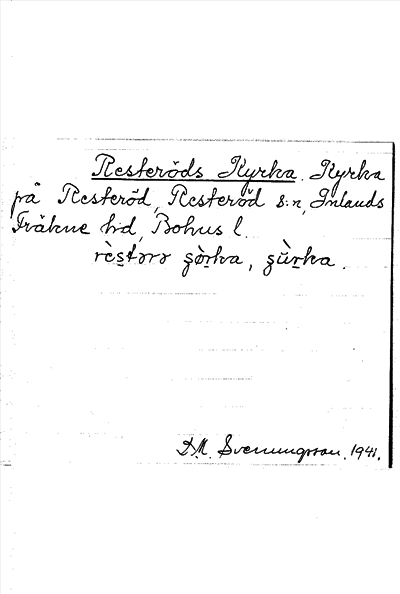 Resteröds Kyrka. Kyrka
på Resteröd, Resteröd s:n, Inlands
Fräkne hd, Bohus l.
rèstərə ʂø̀rka, ʂùrka.
D.M. Svenungsson. 1941.